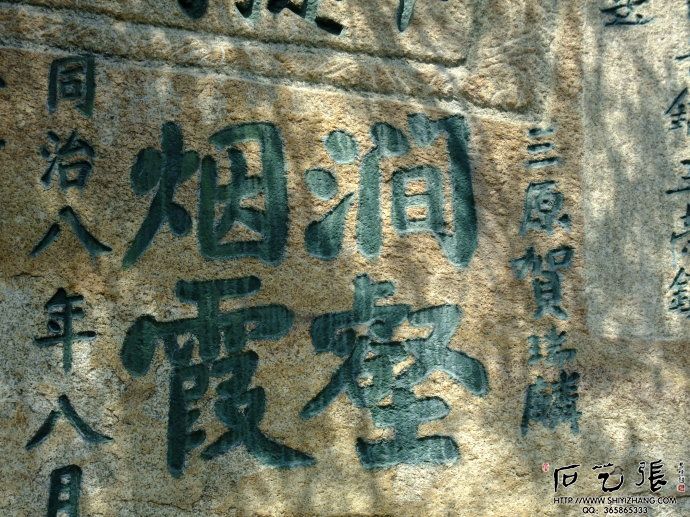 三原賀瑞麟
澗壑
烟霞
同治八年八月
石艺張
HTTP://WWW.SHIYIZHANG.COM
QQ: 365865333